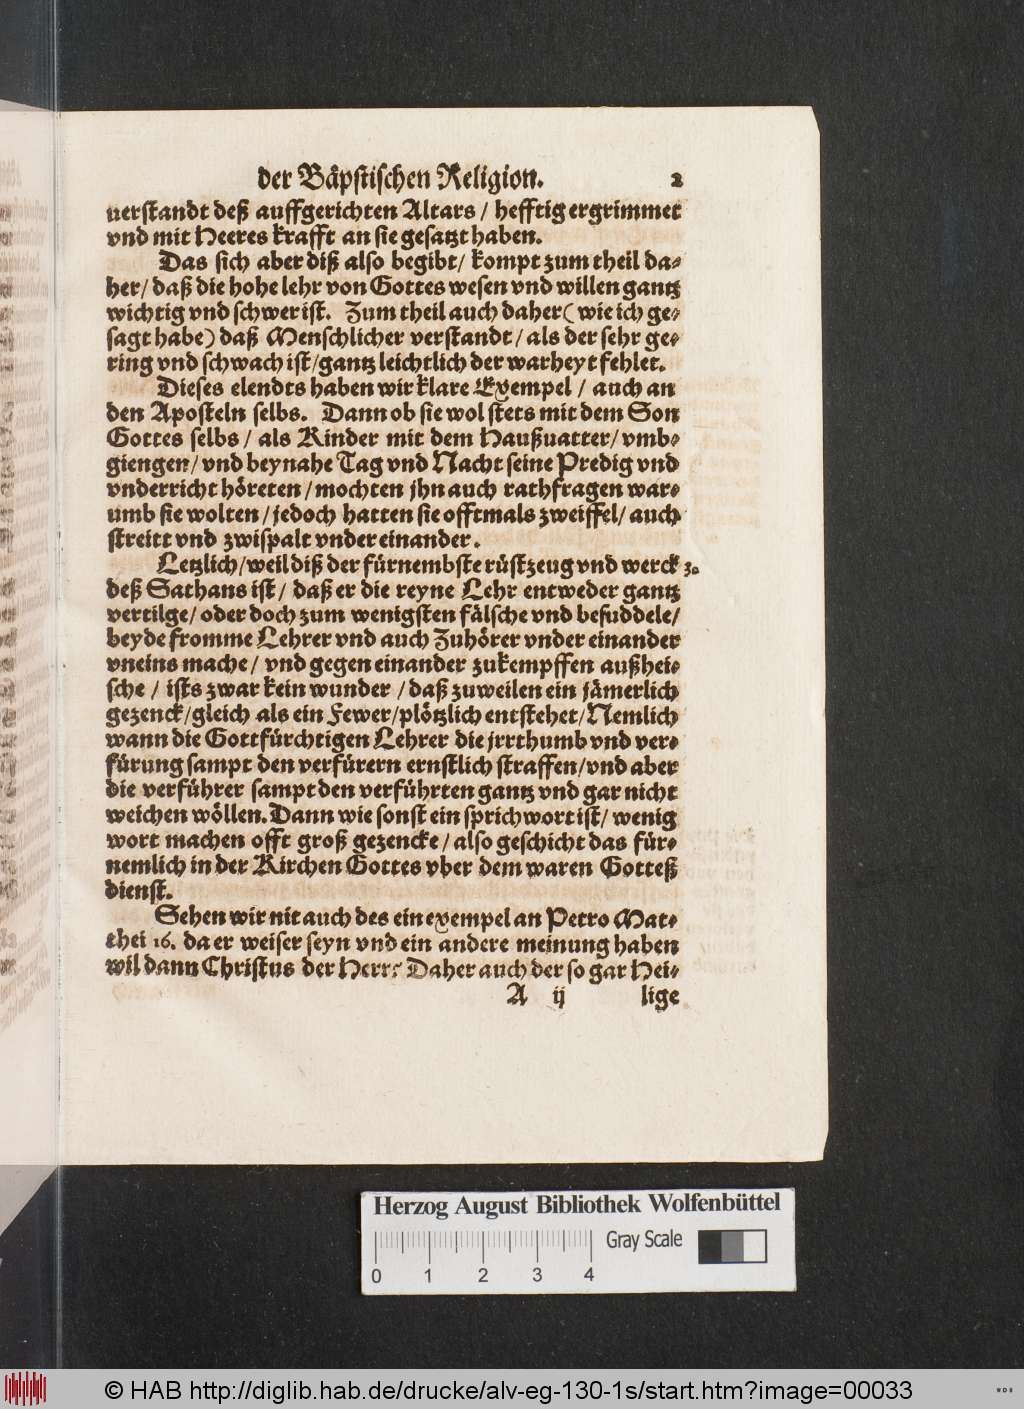 der Bäpstischen Religion. 2
uerstandt deß auffgerichten Altars / hefftig ergrimmet
vnd mit Heeres krafft an sie gesatzt haben.
Das sich aber diß also begibt / kompt zum theil da-
her / daß die hohe lehr von Gottes wesen vnd willen gantz
wichtig vnd schwer ist. Zum theil auch daher ( wie ich ge-
sagt habe ) daß Menschlicher verstandt / als der sehr ge-
ring vnd schwach ist / gantz leichtlich der warheyt fehlet.
Dieses elendts haben wir klare Exempel / auch an
den Aposteln selbs. Dann ob sie wol stets mit dem Son
Gottes selbs / als Kinder mit dem Haußuatter / vmb-
giengen / vnd beynahe Tag vnd Nacht seine Predig vnd
vnderricht höreten / mochten jhn auch rathfragen war-
umb sie wolten / jedoch hatten sie offtmals zweiffel / auch
streitt vnd zwispalt vnder einander.
Letzlich / weil diß der fürnembste rüstzeug vnd werck 3.
deß Sathans ist / daß er die reyne Lehr entweder gantz
vertilge / oder doch zum wenigsten fälsche vnd besuddele /
beyde fromme Lehrer vnd auch Zuhörer vnder einander
vneins mache / vnd gegen einander zukempffen außhei-
sche / ists zwar kein wunder / daß zuweilen ein jämerlich
gezenck / gleich als ein Fewer / plötzlich entstehet / Nemlich
wann die Gottfürchtigen Lehrer die jrrthumb vnd ver-
fürung sampt den verfürern ernstlich straffen / vnd aber
die verführer sampt den verführten gantz vnd gar nicht
weichen wöllen. Dann wie sonst ein sprichwort ist / wenig
wort machen offt groß gezencke / also geschicht das für-
nemlich in der Kirchen Gottes vber dem waren Gotteß
dienst.
Sehen wir nit auch des ein exempel an Petro Mat-
thei 16. da er weiser seyn vnd ein andere meinung haben
wil dann Christus der Herr? Daher auch der so gar Hei-
A ij lige
Herzog August Bibliothek Wolfenbüttel
Gray Scale
0 1 2 3 4
© HAB http://diglib.hab.de/drucke/alv-eg-130-1s/start.htm?image=00033